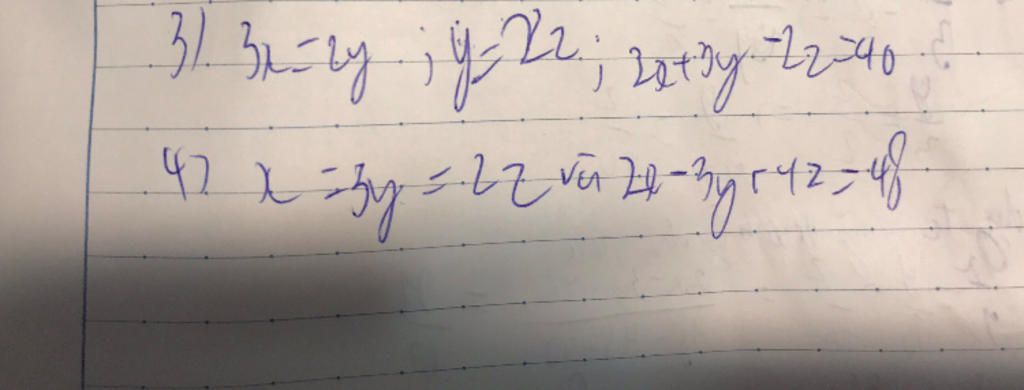 3). 3x=2y ; y=2z ; 2x+3y-2z=40
4) x=3y=2z và 2x-3y+4z=48